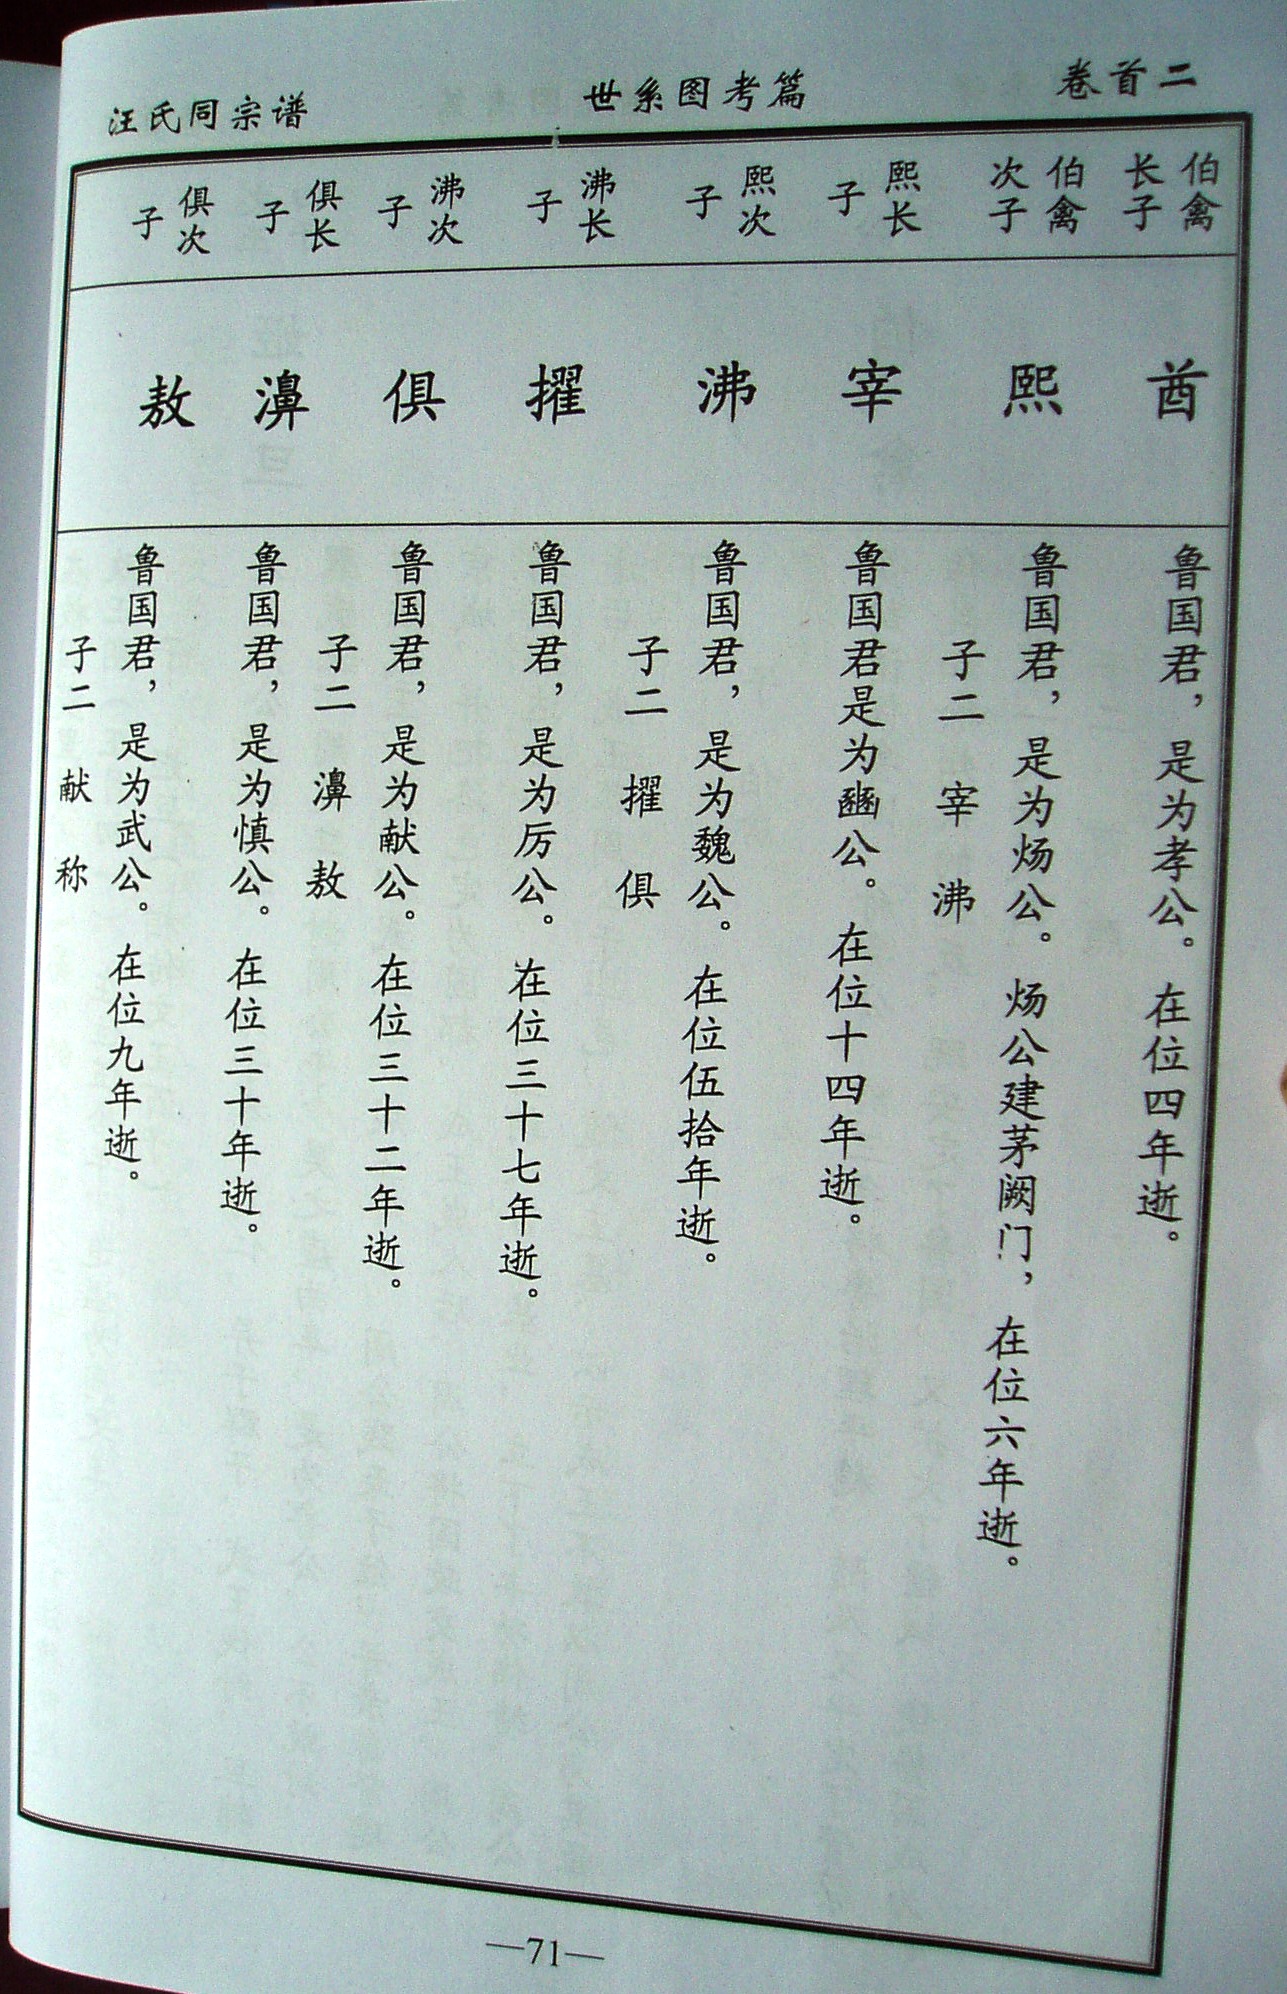 卷首二
世系图考篇
汪氏同宗谱
伯禽
长子
酋
鲁国君，是为孝公。在位四年逝。
伯禽
次子
熙
鲁国君，是为炀公。炀公建茅阙门，在位六年逝。
子二 宰 沸
熙长
子
宰
鲁国君是为幽公。在位十四年逝。
熙次
子
沸
鲁国君，是为魏公。在位伍拾年逝。
子二 擢 俱
沸长
子
擢
鲁国君，是为厉公。在位三十七年逝。
沸次
子
俱
鲁国君，是为献公。在位三十二年逝。
子二 濞 敖
俱长
子
濞
鲁国君，是为慎公。在位三十年逝。
俱次
子
敖
鲁国君，是为武公。在位九年逝。
子二 献 称
—71—